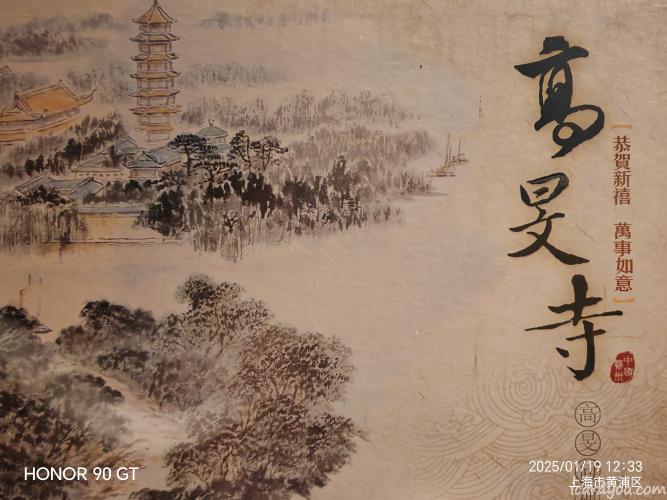 高旻寺
恭賀新禧 萬事如意
中國
高旻
HONOR 90 GT
2025/01/19 12:33
上海市黄浦区